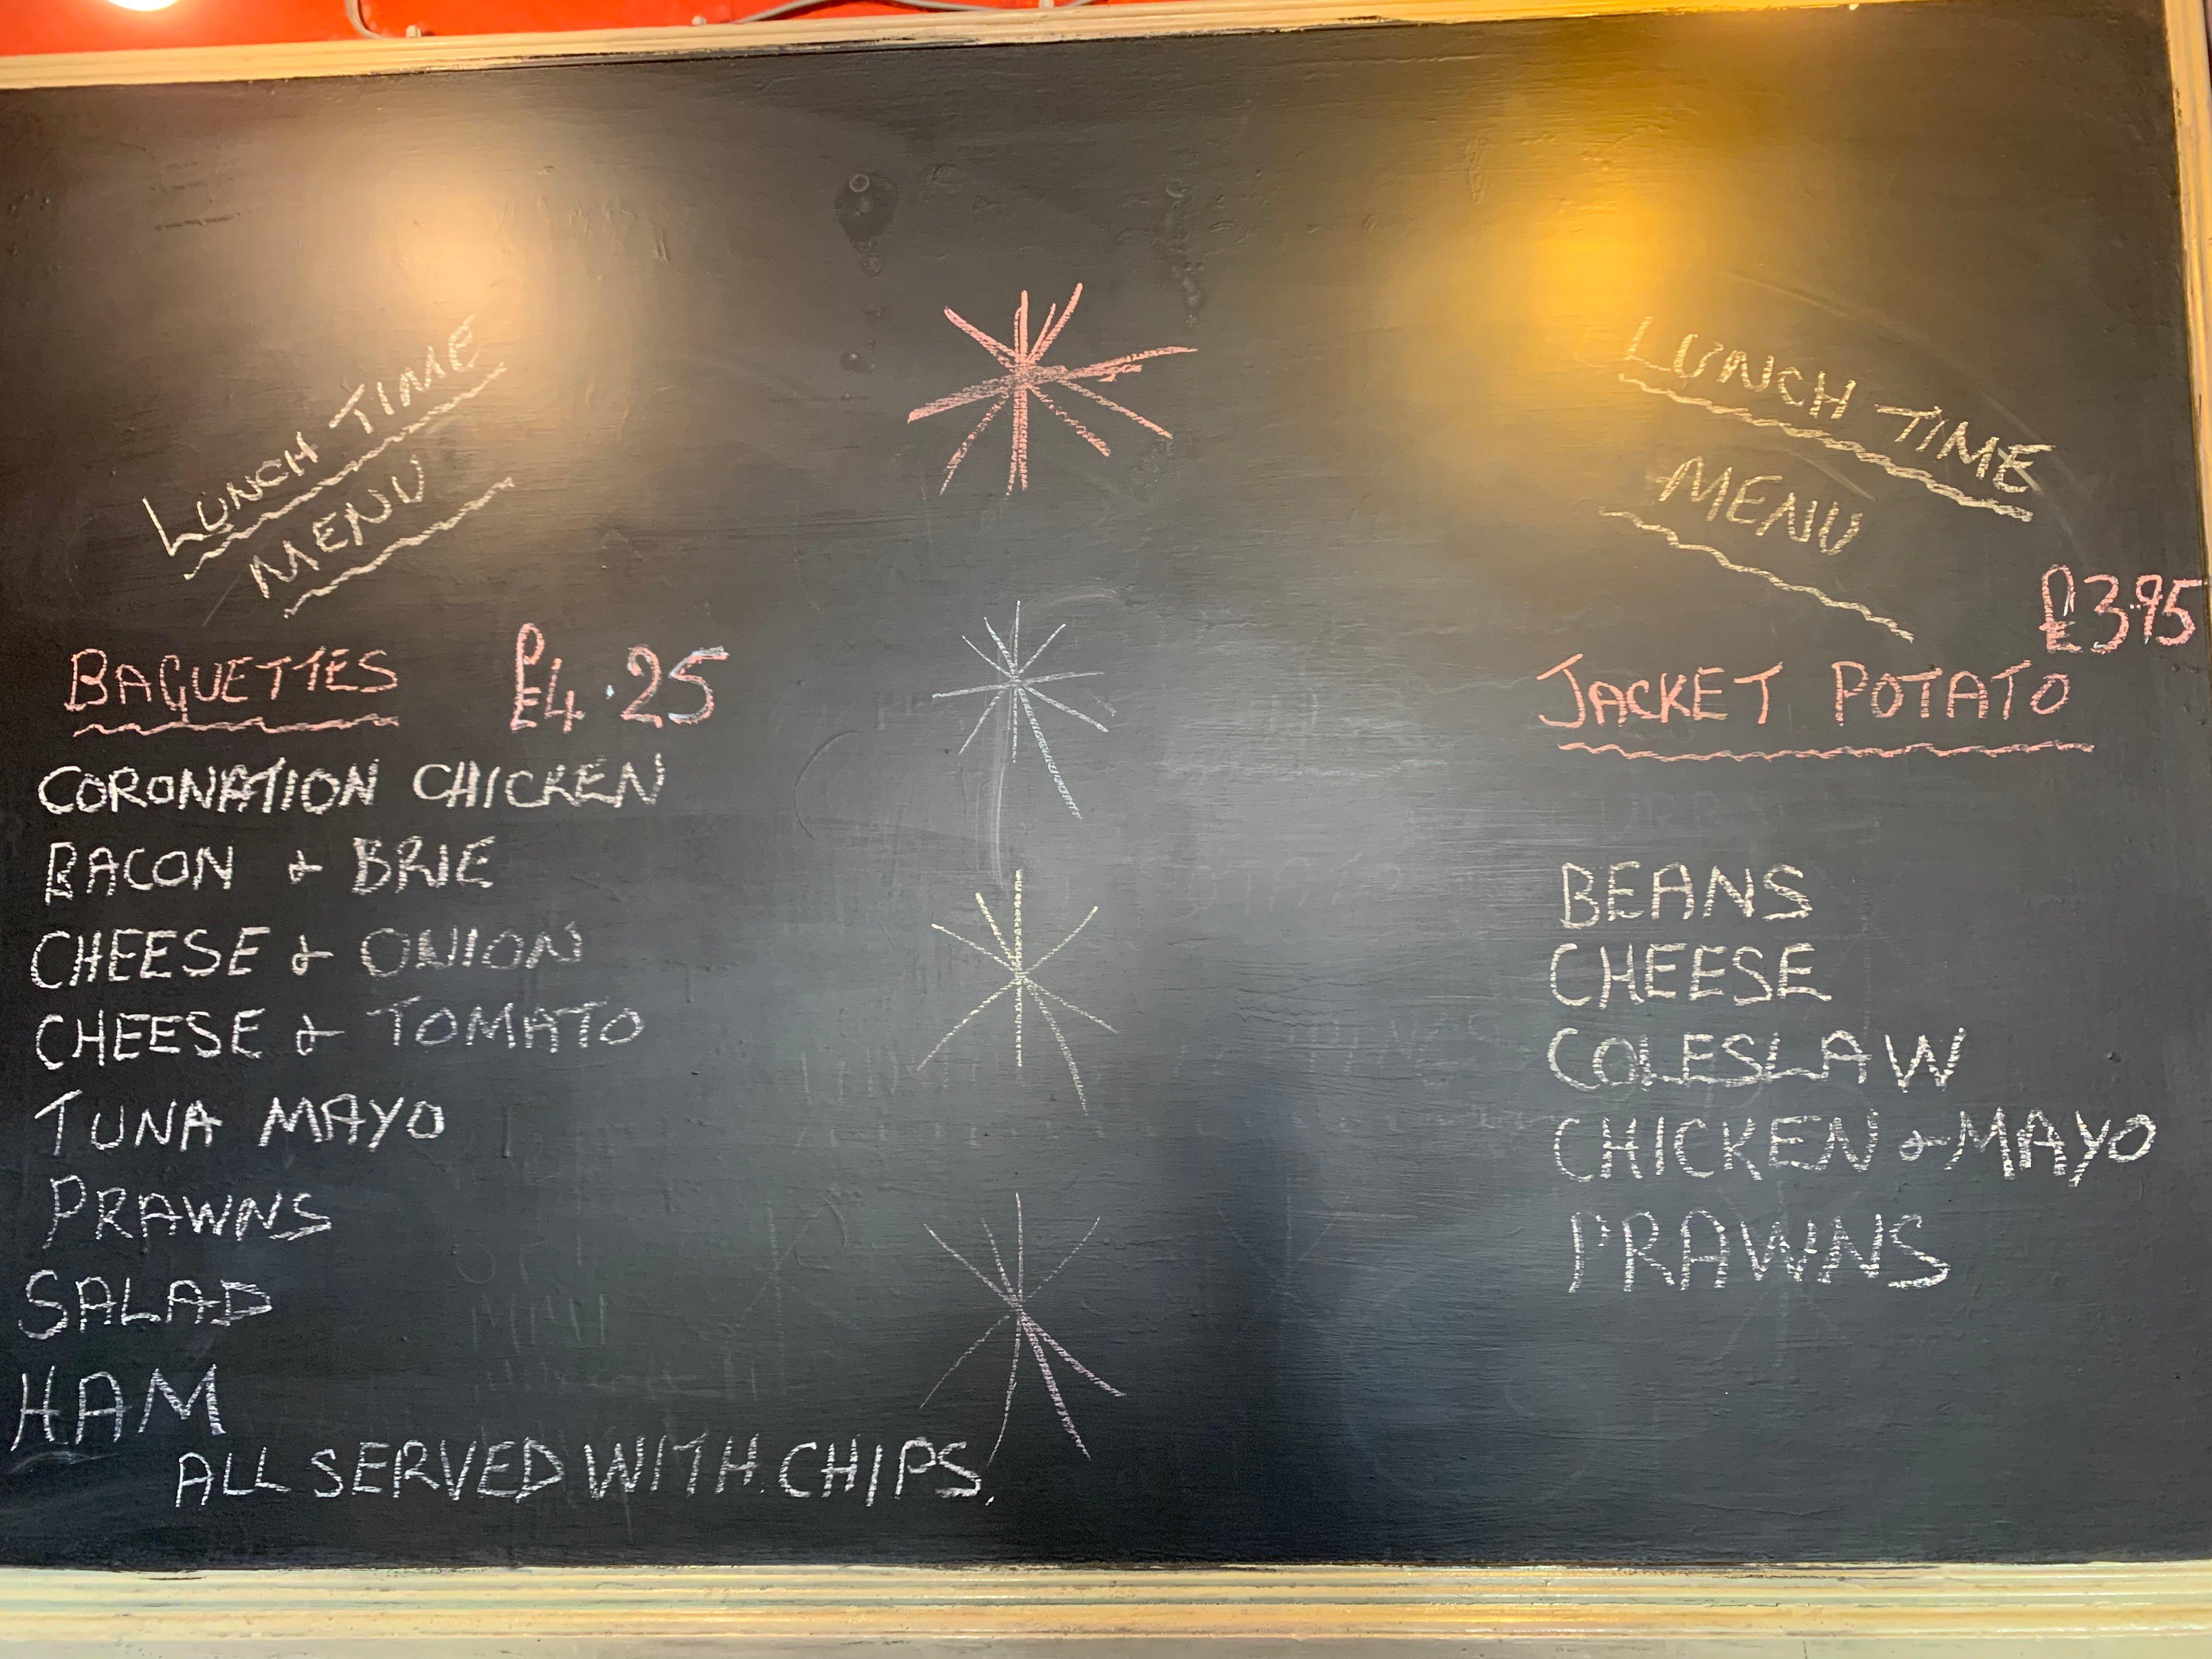 LUNCH TIME
MENU
BAGUETTES £4.25
CORONATION CHICKEN
BACON & BRIE
CHEESE & ONION
CHEESE & TOMATO
TUNA MAYO
PRAWNS
SALAD
HAM
ALL SERVED WITH CHIPS.
LUNCH TIME
MENU
£3.95
JACKET POTATO
BEANS
CHEESE
COLESLAW
CHICKEN & MAYO
PRAWNS